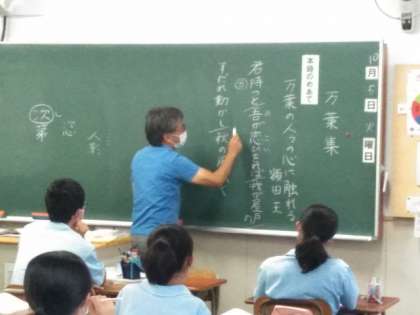 10月5日火曜日
万葉集
本時のめあて
万葉の人々の心に触れる
額田王
君待つと吾が恋ひをれば我が屋戸の
すだれ動かし秋の風吹く
心
次第